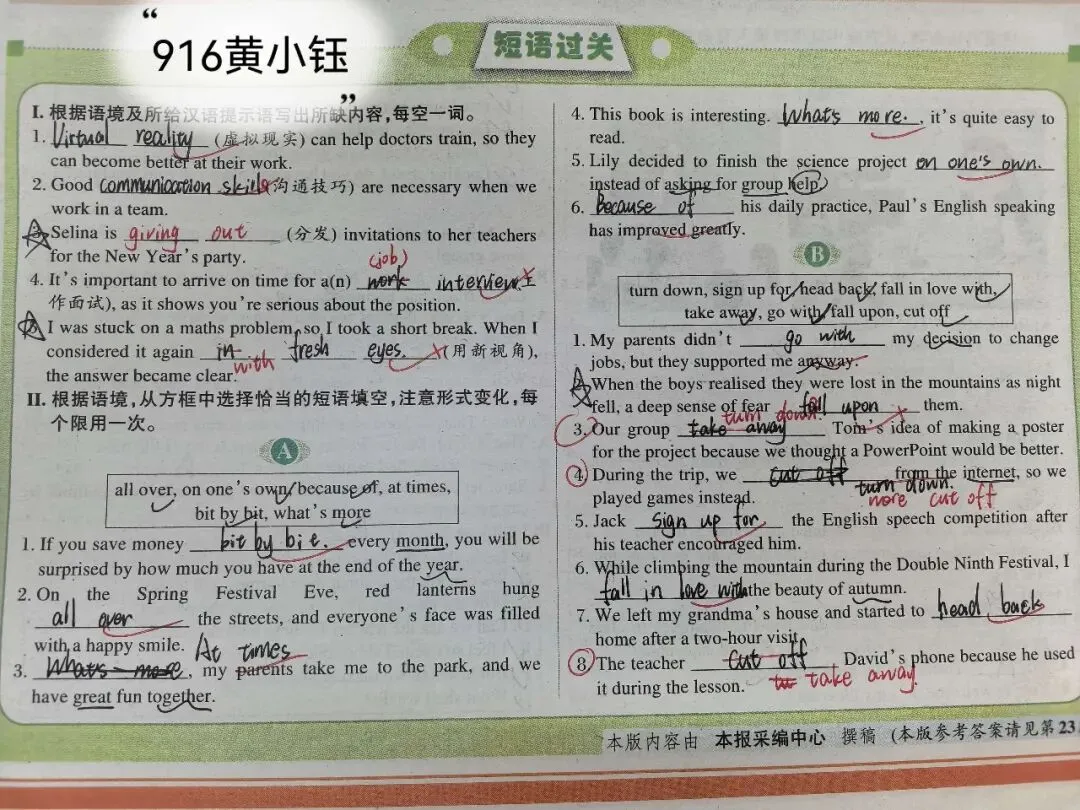 “
916黄小钰
”
短语过关
I. 根据语境及所给汉语提示语写出所缺内容,每空一词。
1. Virtual reality (虚拟现实) can help doctors train, so they
can become better at their work.
2. Good communication skills (沟通技巧) are necessary when we
work in a team.
3. Selina is giving out (分发) invitations to her teachers
for the New Year's party.
(job)
4. It's important to arrive on time for a(n) work interview (工
作面试), as it shows you're serious about the position.
5. I was stuck on a maths problem, so I took a short break. When I
considered it again in fresh eyes. (用新视角),
with
the answer became clear.
II. 根据语境,从方框中选择恰当的短语填空,注意形式变化,每
个限用一次。
A
all over, on one's own, because of, at times,
bit by bit, what's more
1. If you save money bit by bit. every month, you will be
surprised by how much you have at the end of the year.
2. On the Spring Festival Eve, red lanterns hung
all over the streets, and everyone's face was filled
with a happy smile. At times
3. What's more, my parents take me to the park, and we
have great fun together.
4. This book is interesting. What's more., it's quite easy to
read.
5. Lily decided to finish the science project on one's own.
instead of asking for group help.
6. Because of his daily practice, Paul's English speaking
has improved greatly.
B
turn down, sign up for, head back, fall in love with,
take away, go with, fall upon, cut off
1. My parents didn't go with my decision to change
jobs, but they supported me anyway.
2. When the boys realised they were lost in the mountains as night
fell, a deep sense of fear fall upon them.
turn down.
3. Our group take away Tom's idea of making a poster
for the project because we thought a PowerPoint would be better.
4. During the trip, we cut off from the internet, so we
turn down.
played games instead. were cut off
5. Jack sign up for the English speech competition after
his teacher encouraged him.
6. While climbing the mountain during the Double Ninth Festival, I
fall in love with the beauty of autumn.
7. We left my grandma's house and started to head back
home after a two-hour visit.
8. The teacher cut off David's phone because he used
it during the lesson. take away.
本版内容由 本报采编中心 撰稿 (本版参考答案请见第23